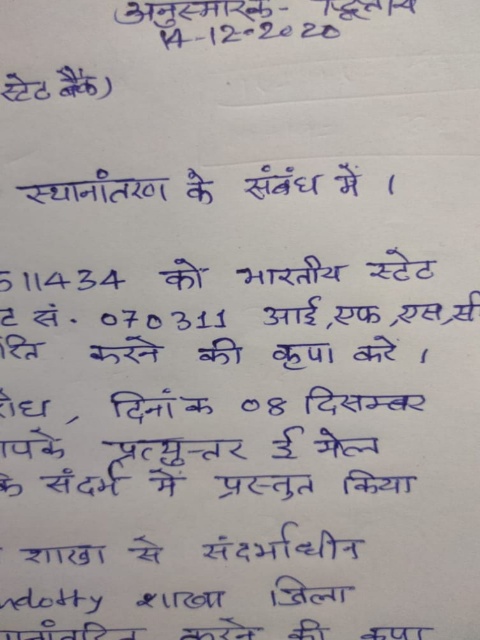 अनुस्मारक - द्वितीय
14-12-2020
स्टेट बैंक)
स्थानांतरण के संबंध में ।
511434 को भारतीय स्टेट
सं. 070311 आई,एफ,एस,सी
करने की कृपा करें ।
दिनांक 08 दिसम्बर
आपके प्रत्युत्तर ई मेल
के संदर्भ में प्रस्तुत किया
शाखा से संदर्भाधीन
ndotty शाखा जिला
स्थानांतरित करने की कृपा